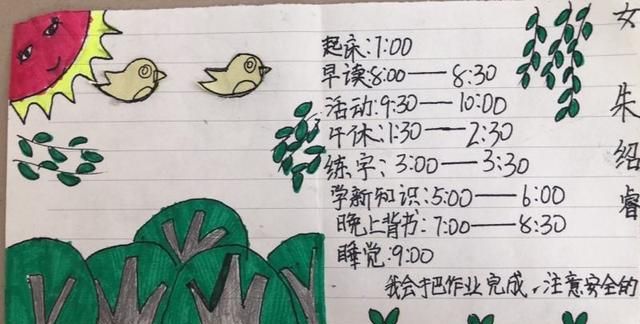 起床:7:00
早读:8:00——8:30
活动:9:30——10:00
午休:1:30——2:30
练字:3:00——3:30
学新知识:5:00——6:00
晚上背书:7:00——8:30
睡觉:9:00
我会把作业完成,注意安全的
女 朱绍睿